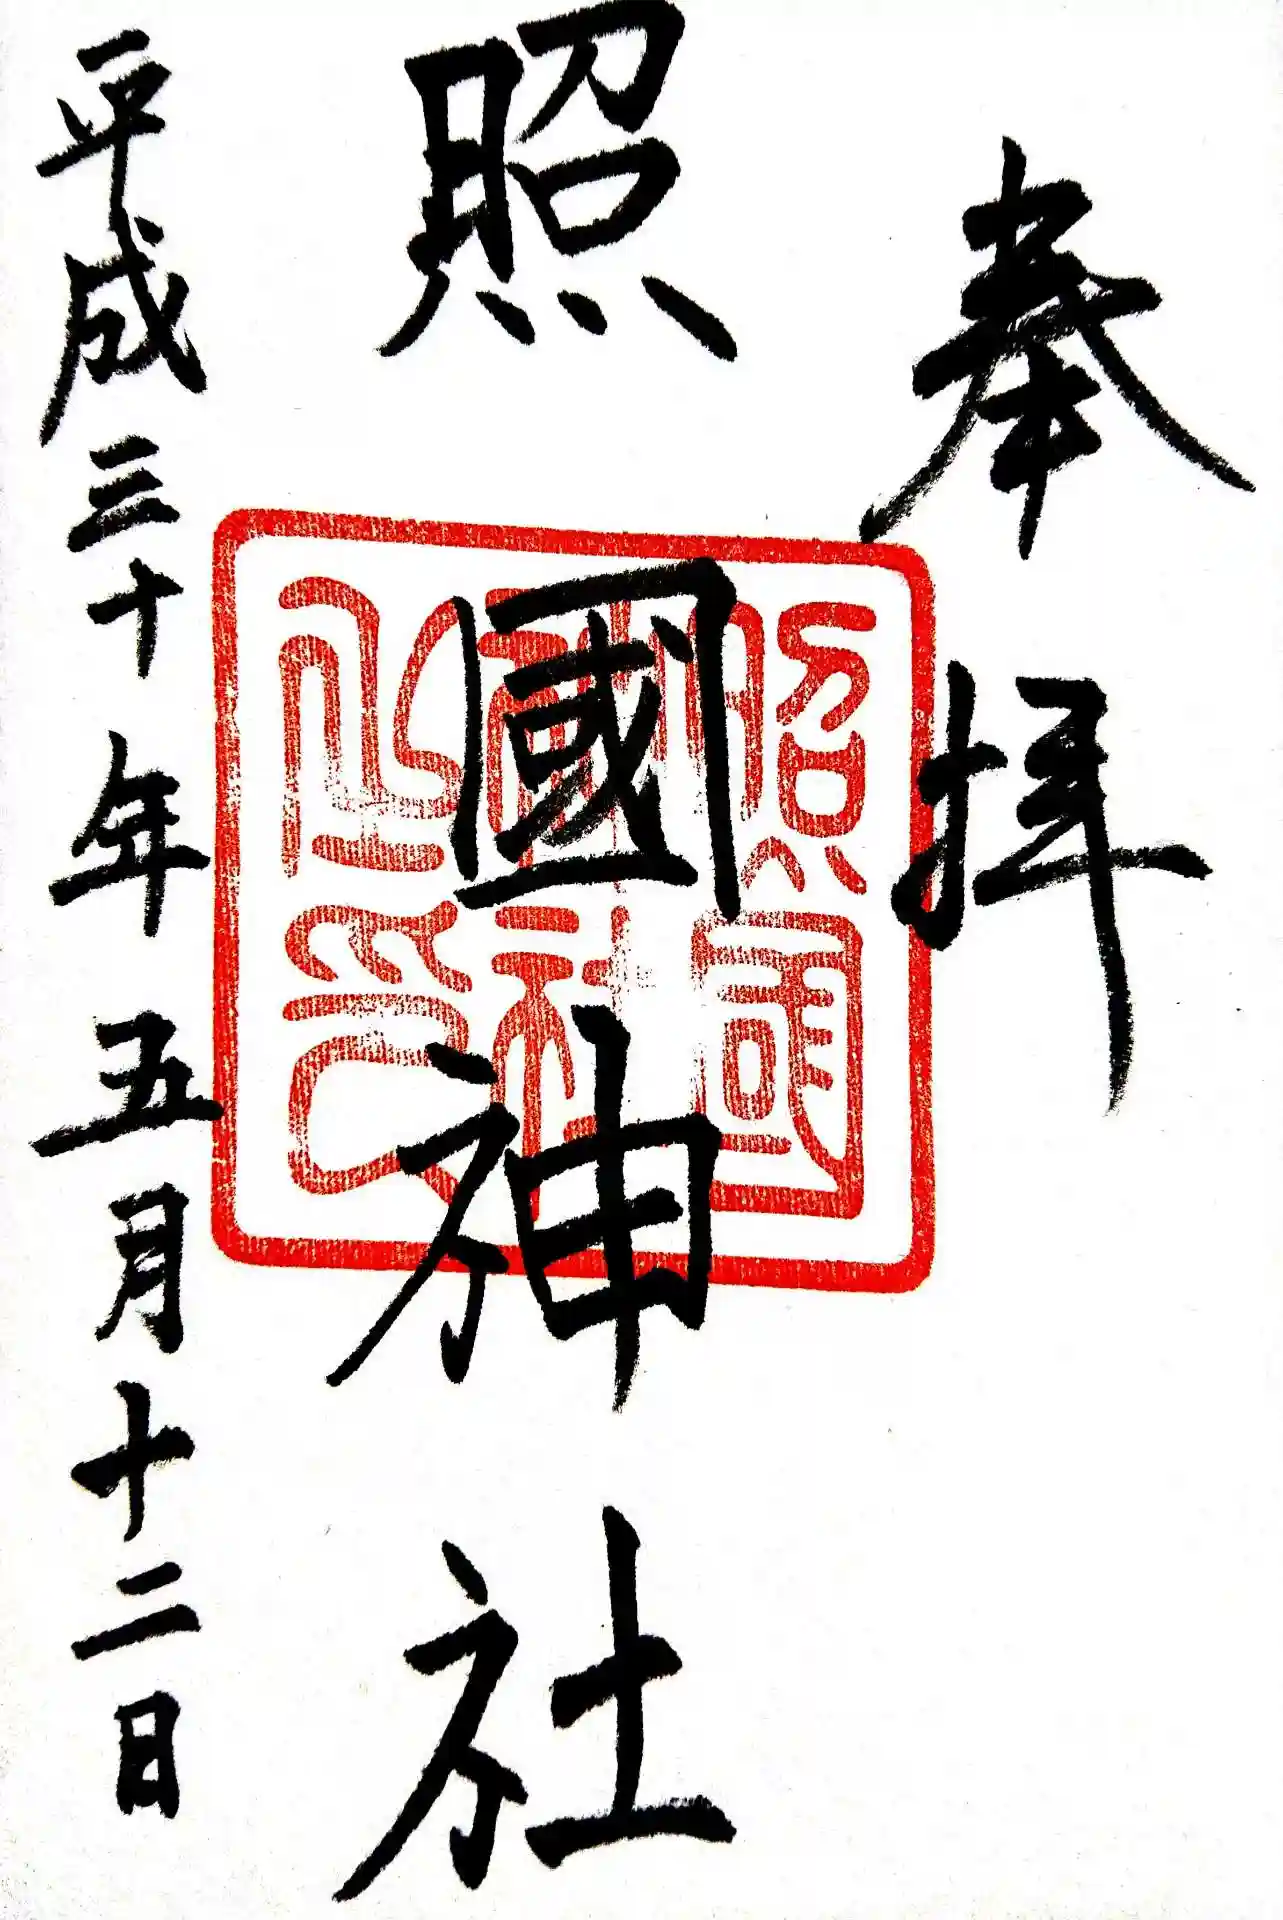 奉拝
照國神社
照國
神社
之印
平成三十年五月十二日